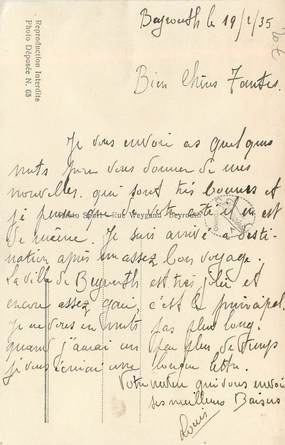 Beyrouth le 19/2/35
Bien Chères Tantes.
Je vous envoi as quelques
mots pour vous donner de mes
nouvelles. qui sont très bonnes et
je pense que de votre coté il en est
de même. Je suis arrivé a desti-
nation après un assez bon voyage.
La ville de Beyrouth est très jolie et
encore assez gaie, c'est le principal.
Je ne vous en mets pas plus long.
quand j'aurai un peu plus de temps
je vous écrirai une longue lettre.
Votre neveu qui vous envoi
ses meilleurs Baisers
Louis
Reproduction Interdite
Photo Déposée N. 63
Photo Sport - Rue Weygand - Beyrouth